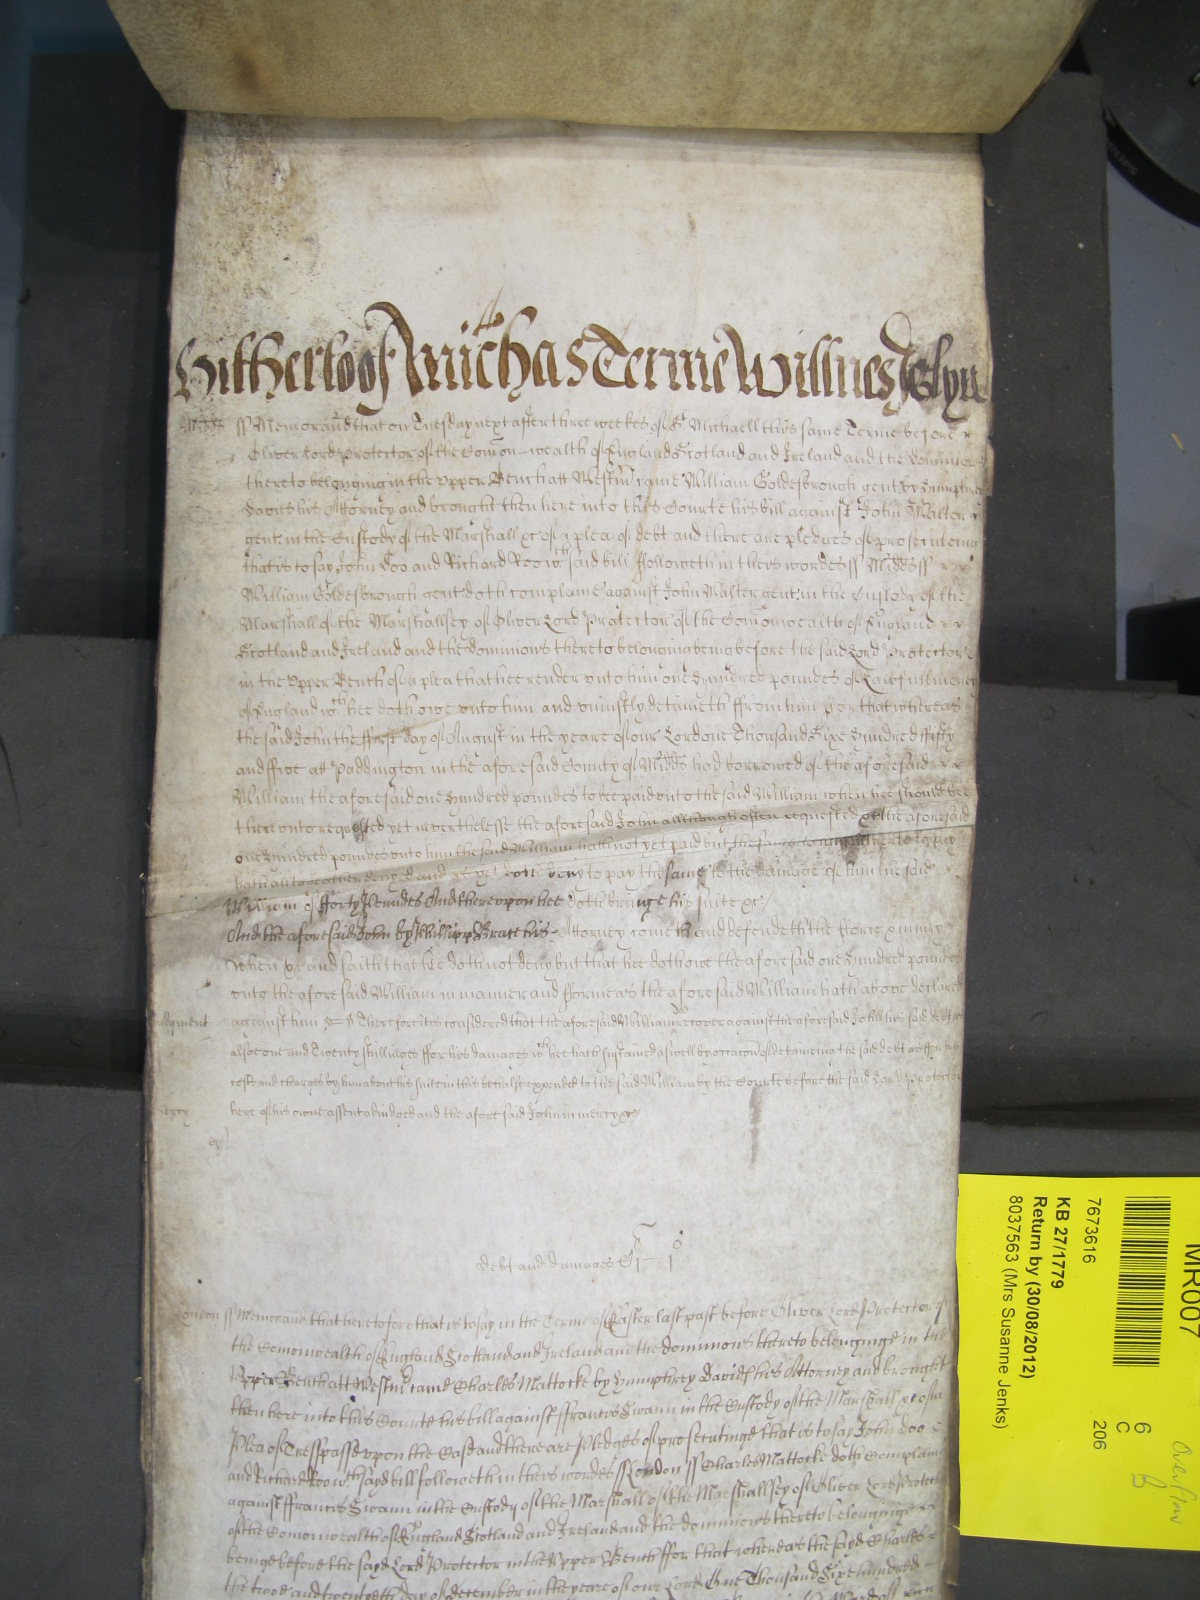 Hitherto of Mich'as Terme Willnes Jeslyn
Midds ss Memorand that on Tuesday next after three weekes of St Michaell this same Terme before
Oliver Lord Protector of the Comon-wealth of England Scotland and Ireland and the dominions
thereto belonging in the Upper Bench att Westm came William Goldesbrough gent by Humphrey
Davies his Attorney and brought then here into this Courte his bill against John Walter
gent in the Custody of the Marshall &c of a plea of debt and there are pledges of prosecuteing
that is to say John Doo and Richard Roo wch said bill followeth in theis wordes ss Midds ss
William Goldesbrough gent doth complaine against John Walter gent in the Custody of the
Marshall of the Marshallsey of Oliver Lord Protector of the Comonwealth of England
Scotland and Ireland and the dominions thereto belonging being before the said Lord Protector
in the Upper Bench of a plea that hee render unto him one Hundred poundes of Lawfull money
of England wch hee doth owe unto him and uniustly detaineth ffrom him for that whereas
the said John the ffirst day of August in the yeare of our Lord one Thousand Sixe Hundred ffifty
and ffive at Paddington in the aforesaid County of Midds had borrowed of the aforesaid
William the aforesaid one Hundred poundes to bee paid unto the said William when hee should bee
thereunto requested yet neverthelesse the aforesaid John allthough often requested &c the aforesaid
one Hundred poundes unto him the said William hath not yet paid but the same to him hitherto to pay
hath altogeather denyed and as yet doth deny to pay the same to the damage of him the said
William of fforty Poundes And thereupon hee doth bringe his suite &c
And the aforesaid John by Phillipp Grace his Attorney cometh and defendeth the fforce &
when &c and saith that hee doth not deny but that hee doth owe the aforesaid one Hundred poundes
unto the aforesaid William in manner and fforme as the aforesaid William hath above declared
Judgment against him Therefore it is considered that the aforesaid William doe recover against the aforesaid John his said debt and
alsoe one and Twenty shillinges ffor his damages wch hee hath sustained aswell by occacion of detaineing the said debt as ffor his
costs and charges by him about his suite in this behalfe expended to the said William by the Courte before the said Lord Protector
mercy here of his owne assent adiudged and the aforesaid John in mercy &c
Debt and damages
London ss Memorand that heretofore that is to say in the Terme of Easter last past before Oliver Lord Protector of
the Comonwealth of England Scotland and Ireland and the dominions thereto belonginge in the
Upper Bench att Westm came Charles Mattocke by Humphrey Davies his Attorney and brought
then here into this Courte his bill against ffrancis Swann in the Custody of the Marshall &c of a
Plea of Tresspasse upon the Case and there are Pledges of prosecutinge that is to say John Doo
and Richard Roo wch sayd bill followeth in theis wordes ss London ss Charles Mattocke doth Complaine
against ffrancis Swann in the Custody of the Marshall of the Marshallsey of Oliver Lord Protector
of the Comonwealth of England Scotland and Ireland and the dominions thereto belonginge
beinge before the sayd Lord Protector in the Upper Bench ffor that whereas the sayd Charles
the twoe and twentyeth day of december in the yeare of our Lord One Thousand Sixe hundred
MR007
6
C
206
7673616
KB 27/1779
Return by (30/08/2012)
8037563 (Mrs Susanne Jenks)
Overflow
PHILIPS